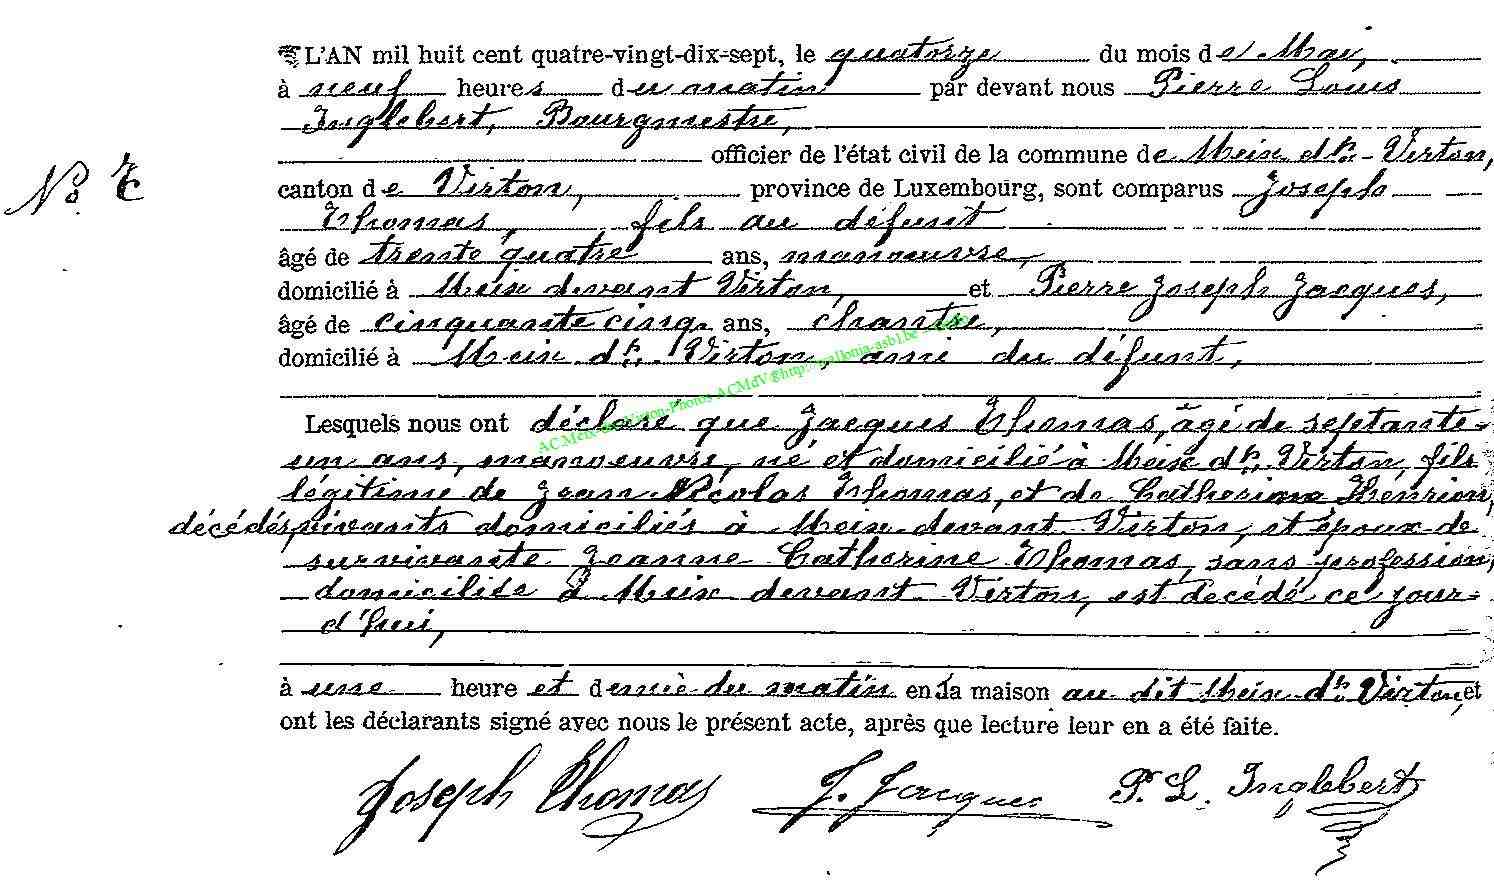 L'AN mil huit cent quatre-vingt-dix-sept, le quatorze du mois de Mai,
à neuf heures du matin par devant nous Pierre Louis
Inglebert, Bourgmestre,
officier de l'état civil de la commune de Meix dt- Virton,
No.
canton de Virton, province de Luxembourg, sont comparus Joseph
Thomas, fils au défunt
âgé de trente quatre ans, manoeuvre,
domicilié à Meix devant Virton, et Pierre Joseph Jacques,
âgé de cinquante cinq ans, chantre,
domicilié à Meix dt. Virton, ami du défunt,
Lesquels nous ont déclaré que Jacques Thomas, âgé de septante-
un ans, manoeuvre, né et domicilié à Meix dt. Virton, fils
légitime de Jean Nicolas Thomas, et de Catherine Henrion,
décédés, vivants domiciliés à Meix devant Virton, et époux de
survivante Jeanne Catherine Thomas, sans profession,
domiciliée à Meix devant Virton, est décédé ce jour-
d'hui,
à une heure et demie du matin en la maison au dit Meix dt. Virton, et
ont les déclarants signé avec nous le présent acte, après que lecture leur en a été faite.
Joseph Thomas J. Jacques P. L. Inglebert